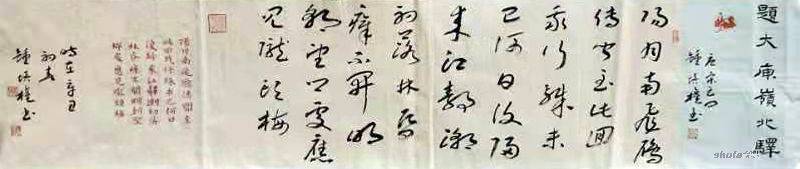 題大庾嶺北驛
唐宋之問
陽月南飛雁
傳聞至此迴
我行殊未
已何日復歸
來江靜潮
初落林昏
瘴不開明
朝望鄉處應
見隴頭梅
陽月南飛雁傳聞至
此回我行殊未已何日
復歸來江靜潮初落
林昏瘴不開明朝望
鄉處應見隴頭梅
時在辛丑
初春